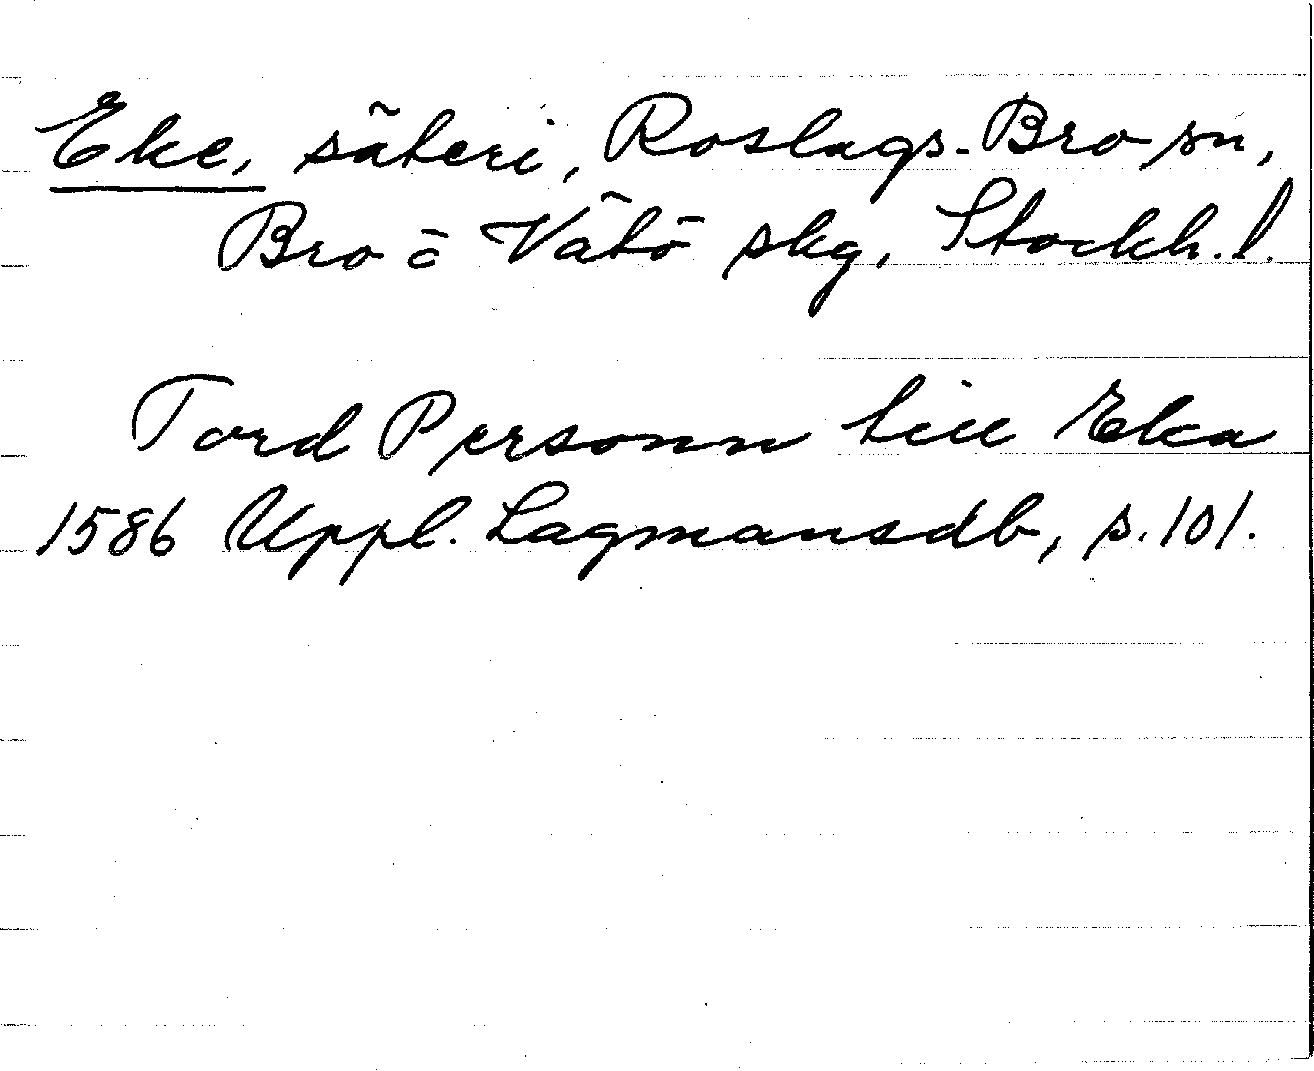 Eke, säteri, Roslags-Bro sn,
Bro ö Vätö skg, Stockh. l.
Tord Personn till Eka
1586 Uppl. Lagmansdb, s. 101.